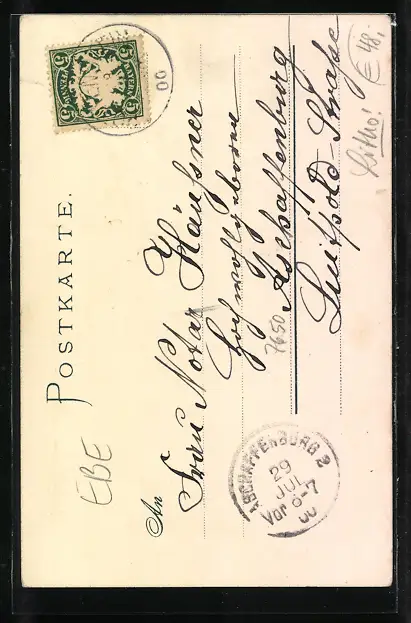 POSTKARTE.
5 BAYERN 5
00
EBE
An
Frau Notar Häußner
Hochwohlgeboren
7650 Aschaffenburg
Luitpold-Straße
Litho!
€ 48,-
ASCHAFFENBURG 2
29
JUL
Vor 6-7
00